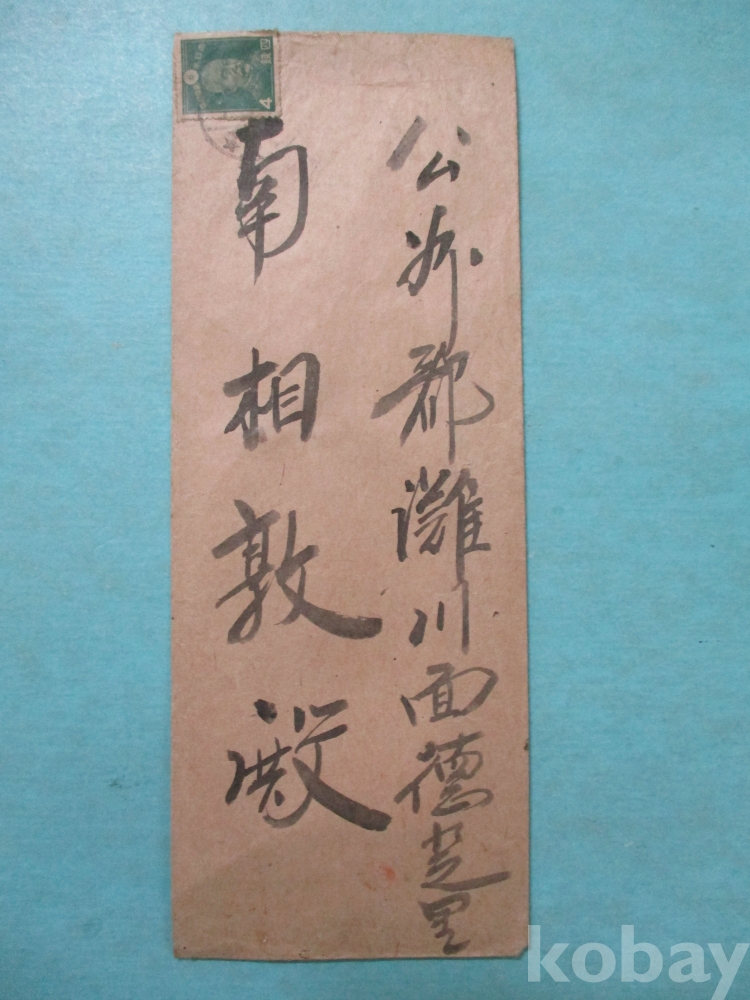 公州郡灘川面德芝里
南相敦殿
4
kobay